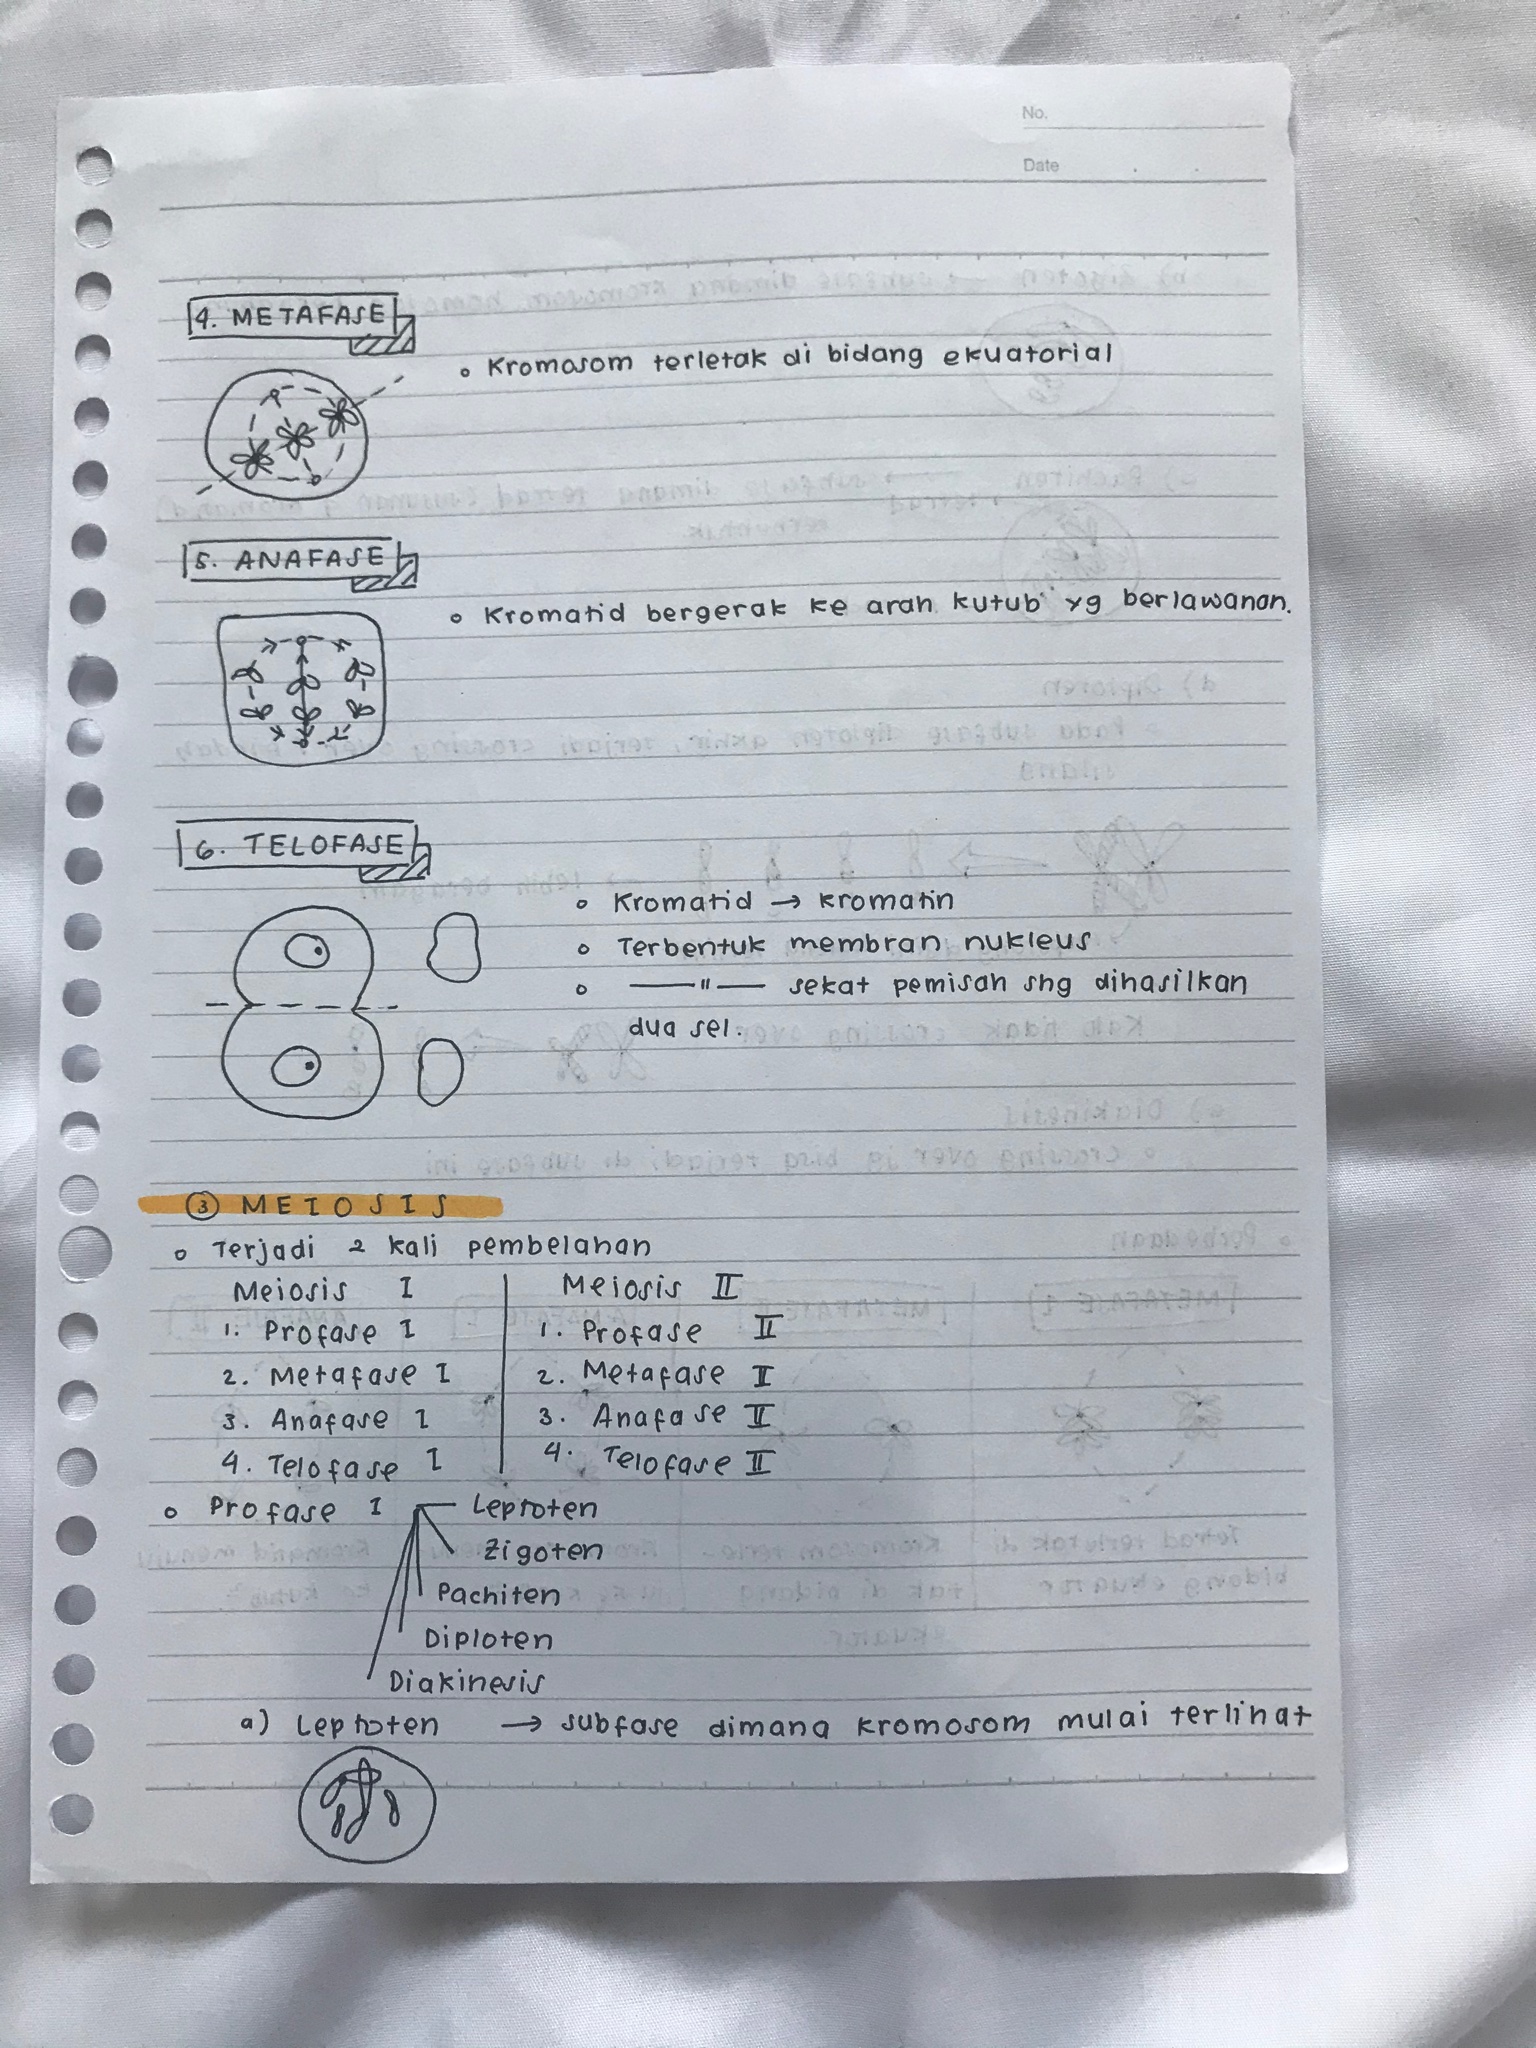 No.
Date
4. METAFASE
• Kromosom terletak di bidang ekuatorial
5. ANAFASE
• Kromatid bergerak ke arah kutub" yg berlawanan.
6. TELOFASE
• Kromatid → kromatin
• Terbentuk membran nukleus
• —— " —— sekat pemisah shg dihasilkan
dua sel.
③ MEIOSIS
• Terjadi 2 kali pembelahan
Meiosis I | Meiosis II
1. Profase I | 1. Profase II
2. Metafase I | 2. Metafase II
3. Anafase I | 3. Anafase II
4. Telofase I | 4. Telofase II
• Profase I Leptoten
Zigoten
Pachiten
Diploten
Diakinesis
a) Leptoten → subfase dimana kromosom mulai terlihat